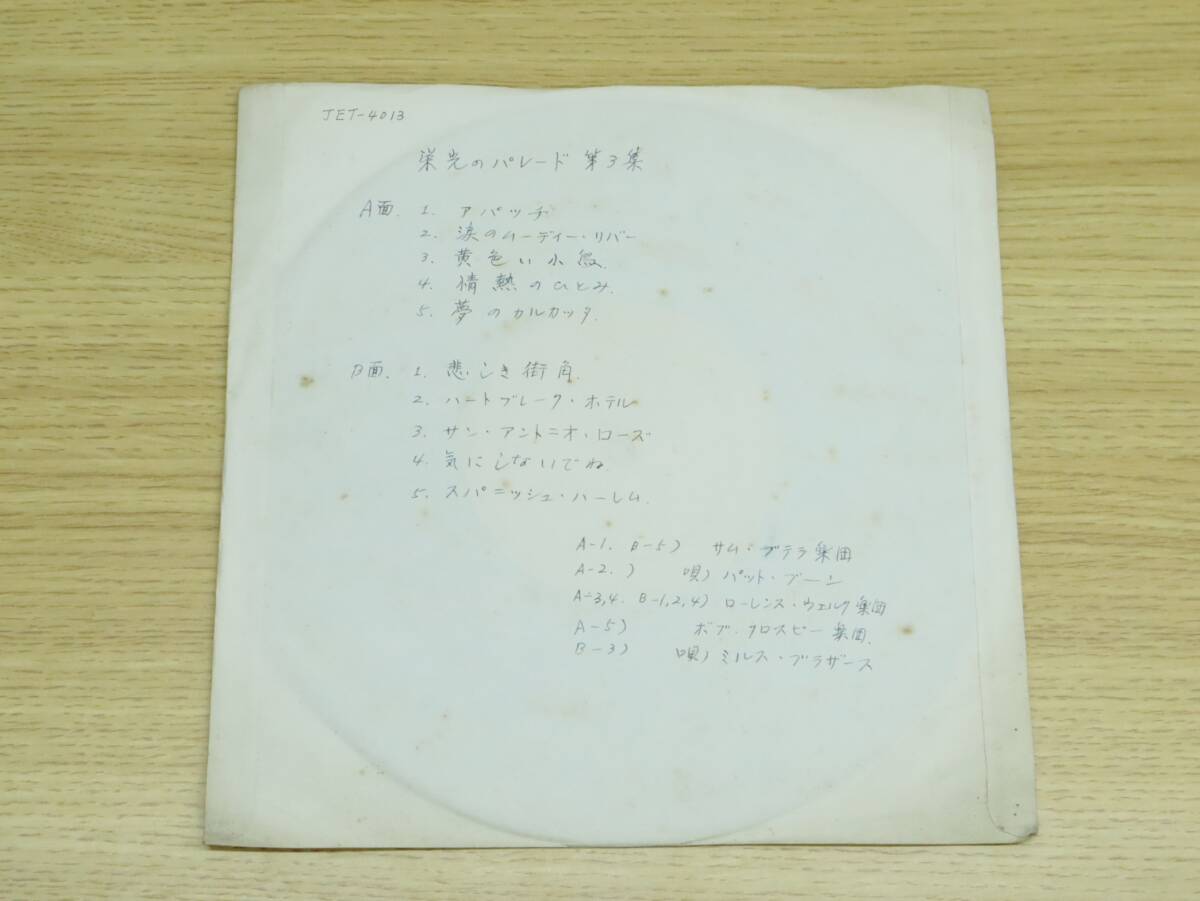 JET-4013
栄光のパレード 第3集
A面. 1. アパッチ
2. 涙のムーディー・リバー
3. 黄色い小鳥.
4. 情熱のひとみ.
5. 夢のカルカッタ.
B面. 1. 悲しき街角.
2. ハートブレーク・ホテル
3. サン・アントニオ・ローズ
4. 気にしないでね
5. スパニッシュ・ハーレム.
A-1. B-5) サム・ブテラ楽団
A-2.) 唄) パット・ブーン
A-3,4. B-1,2,4) ローレンス・ウェルク楽団
A-5) ボブ・クロスビー楽団.
B-3) 唄) ミルス・ブラザース